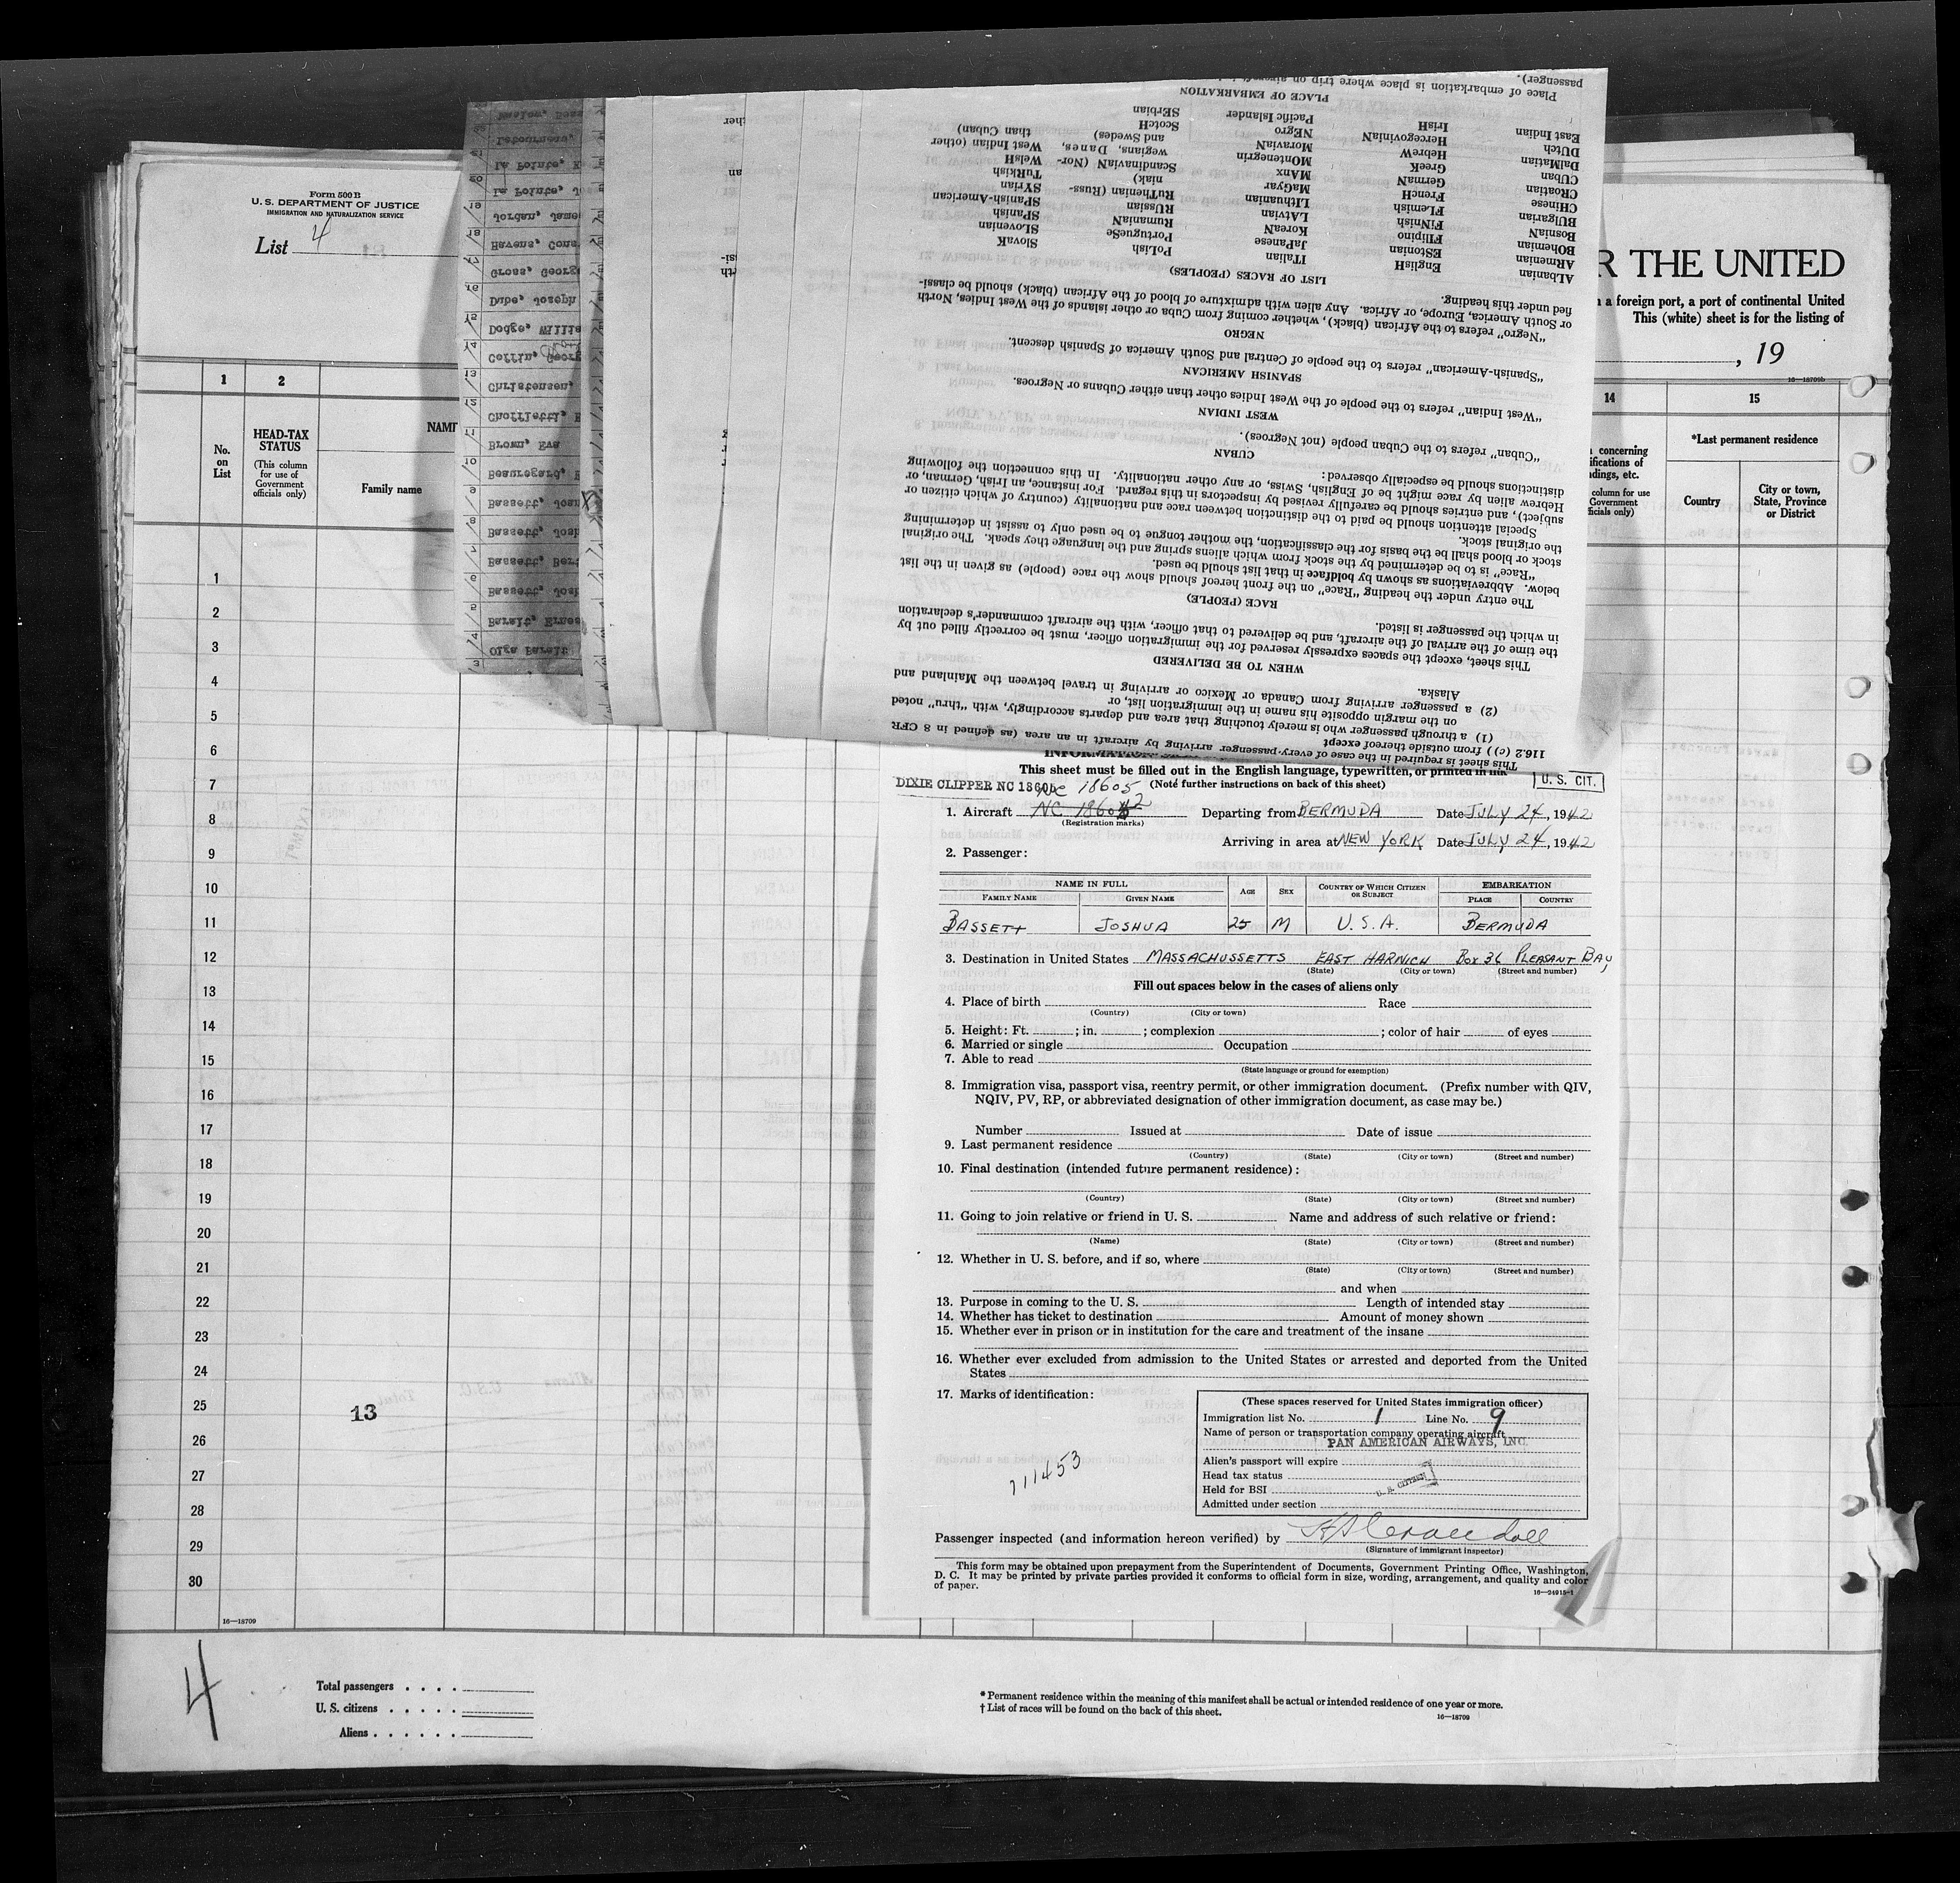 Form 500 B
U. S. DEPARTMENT OF JUSTICE
IMMIGRATION AND NATURALIZATION SERVICE
List 4
R THE UNITED
a foreign port, a port of continental United
This (white) sheet is for the listing of
, 19
16—18709b
1 2 14 15
No. on List
HEAD-TAX STATUS
(This column for use of Government officials only)
Family name
concerning
*Last permanent residence
Country
City or town, State, Province or District
1
2
3
4
5
6
7
8
9
10
11
12
13
14
15
16
17
18
19
20
21
22
23
24
25
26
27
28
29
30
13
16—18709
4
Total passengers . . . .
U. S. citizens . . . . .
Aliens . . . . . .
* Permanent residence within the meaning of this manifest shall be actual or intended residence of one year or more.
† List of races will be found on the back of this sheet.
16—18709
3
4 Olga Barsit
5
6 Bassett,
7 Bassett,
8 Bassett,
9 Bassett,
10 Beauregard,
11 Brown, Eva
12
13 Christensen,
14
15 Dodge,
16 Dube, Joseph
17 Gross,
18 Havens,
19 Jordan,
20 La Pointe,
La Pointe,
This sheet is required in the case of every passenger arriving by aircraft in an area (as defined in 8 CFR
116.2 (c)) from outside thereof except
(1) a through passenger who is merely touching that area and departs accordingly, with "thru" noted
on the margin opposite his name in the immigration list, or
(2) a passenger arriving from Canada or Mexico or arriving in travel between the Mainland and
Alaska.
WHEN TO BE DELIVERED
This sheet, except the spaces expressly reserved for the immigration officer, must be correctly filled out by
the time of the arrival of the aircraft, and be delivered to that officer, with the aircraft commander's declaration
in which the passenger is listed.
RACE (PEOPLE)
The entry under the heading "Race" on the front hereof should show the race (people) as given in the list
below. Abbreviations as shown by boldface in that list should be used.
"Race" is to be determined by the stock from which aliens spring and the language they speak. The original
stock or blood shall be the basis for the classification, the mother tongue to be used only to assist in determining
the original stock.
Special attention should be paid to the distinction between race and nationality (country of which citizen or
subject), and entries should be carefully revised by inspectors in this regard. For instance, an Irish, German, or
Hebrew alien by race might be of English, Swiss, or any other nationality. In this connection the following
distinctions should be especially observed:
CUBAN
"Cuban" refers to the Cuban people (not Negroes).
WEST INDIAN
"West Indian" refers to the people of the West Indies other than either Cubans or Negroes.
SPANISH AMERICAN
"Spanish-American" refers to the people of Central and South America of Spanish descent.
NEGRO
"Negro" refers to the African (black), whether coming from Cuba or other islands of the West Indies, North
or South America, Europe, or Africa. Any alien with admixture of blood of the African (black) should be classi-
fied under this heading.
LIST OF RACES (PEOPLES)
AlBanian EnglisH ITalian PoLish SlovaK
ARmenian EStonian JaPanese PortugueSe SLOvenian
BOhemian FIlipino KoreaN RumaniaN SPanish
BosniaN FiNnish LATvian RUSsian SPanish-American
BUlgarian FLemish LIthuanian RuThenian (Russ- SYrian
CHinese FrencH MaGyar niak) TuRkish
CRoatian GermaN MAnx ScandinaviaN (Nor- WelsH
CUban GreeK MOntenegrin wegians, Danes, West Indian (other
DalMatian HebreW MoraviaN and Swedes) than Cuban)
DUtch HercegoviniaN NEgro ScotcH
East Indian IrisH Pacific Islander SErbian
PLACE OF EMBARKATION
Place of embarkation is place where trip on
passenger).
This sheet must be filled out in the English language, typewritten, or printed in ink
(Note further instructions on back of this sheet)
U. S. CIT.
DIXIE CLIPPER NC 18605
NC 18605
1. Aircraft NC 18602 Departing from BERMUDA Date JULY 24, 1942
(Registration marks)
Arriving in area at NEW YORK Date JULY 24, 1942
2. Passenger:
NAME IN FULL AGE SEX COUNTRY OF WHICH CITIZEN OR SUBJECT EMBARKATION
FAMILY NAME GIVEN NAME PLACE COUNTRY
BASSETT JOSHUA 25 M U.S.A. BERMUDA
3. Destination in United States MASSACHUSSETTS EAST HARWICH Box 36 PLEASANT BAY
(State) (City or town) (Street and number)
Fill out spaces below in the cases of aliens only
4. Place of birth Race
(Country) (City or town)
5. Height: Ft. ; in. ; complexion ; color of hair of eyes
6. Married or single Occupation
7. Able to read
(State language or ground for exemption)
8. Immigration visa, passport visa, reentry permit, or other immigration document. (Prefix number with QIV,
NQIV, PV, RP, or abbreviated designation of other immigration document, as case may be.)
Number Issued at Date of issue
9. Last permanent residence
(Country) (State) (City or town) (Street and number)
10. Final destination (intended future permanent residence):
(Country) (State) (City or town) (Street and number)
11. Going to join relative or friend in U. S. Name and address of such relative or friend:
(Name) (State) (City or town) (Street and number)
12. Whether in U. S. before, and if so, where
(State) (City or town) (Street and number)
and when
13. Purpose in coming to the U. S. Length of intended stay
14. Whether has ticket to destination Amount of money shown
15. Whether ever in prison or in institution for the care and treatment of the insane
16. Whether ever excluded from admission to the United States or arrested and deported from the United
States
17. Marks of identification:
711453
(These spaces reserved for United States immigration officer)
Immigration list No. 1 Line No. 9
Name of person or transportation company operating aircraft
PAN AMERICAN AIRWAYS, INC.
Alien's passport will expire
Head tax status
Held for BSI U. S. CITIZEN
Admitted under section
Passenger inspected (and information hereon verified) by
(Signature of immigrant inspector)
This form may be obtained upon prepayment from the Superintendent of Documents, Government Printing Office, Washington,
D. C. It may be printed by private parties provided it conforms to official form in size, wording, arrangement, and quality and color
of paper.
16—24915-1